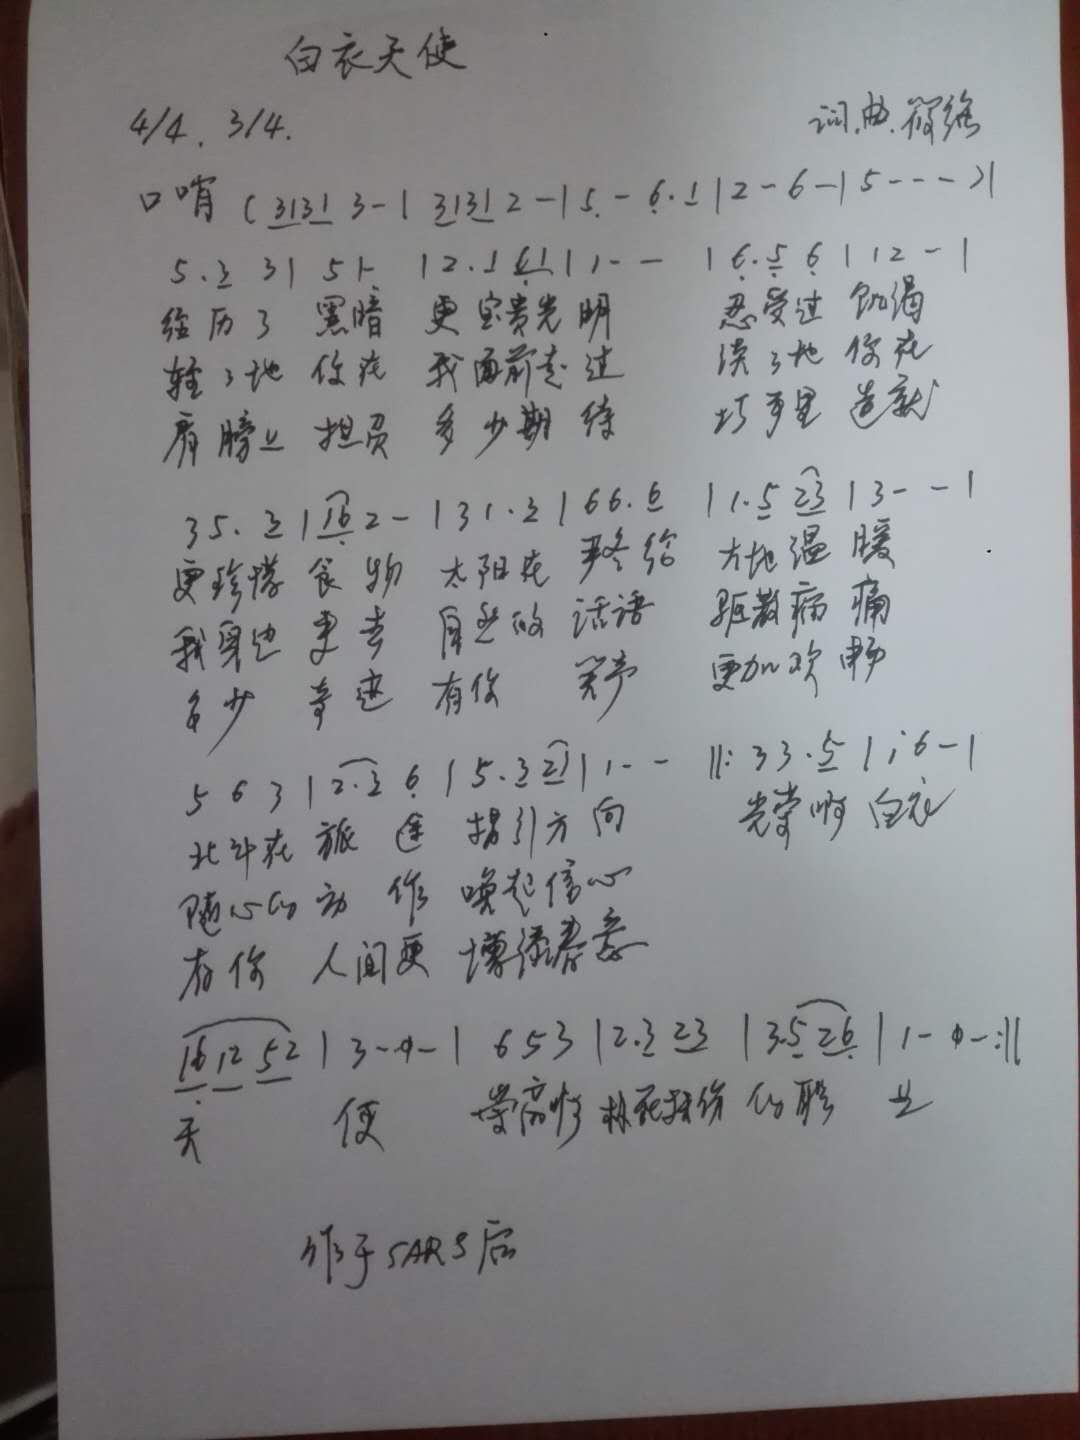 白衣天使
4/4. 3/4. 词.曲.
口哨 ( 3131 3 - | 3131 2 - | 5 - 6 . 1 | 2 - 6 - | 5 - - - ) |
5 . 3 3 | 5 1 - | 2 . 1 6 1 | 1 - - | 6 . 5 6 | 1 2 - |
经历了 黑暗 更宝贵光明 忍受过 饥渴
轻々地 你在 我面前走过 淡々地 你在
肩膀上 担负 多少期待 巧手里 造就
3 5 . 3 | 16 2 - | 3 1 . 2 | 6 6 . 6 | 1 . 5 23 | 3 - - |
更珍惜 食物 太阳在 寒冬给 大地温暖
我身边 更去 自然的 话语 驱散病痛
多少 奇迹 有你 笑声 更加欢畅
5 6 3 | 2 . 3 6 | 5 . 3 21 | 1 - - ||: 3 3 . 5 | i 6 - |
北斗在 旅途 指引方向 光荣啊 白衣
随心的动作 唤起信心
有你 人间更 增添春意
16 12 52 | 3 - 0 - | 6 5 3 | 2 . 3 23 | 3 . 5 26 | 1 - 0 - :||
天 使 崇高啊 救死扶伤 的职业
作于SARS后